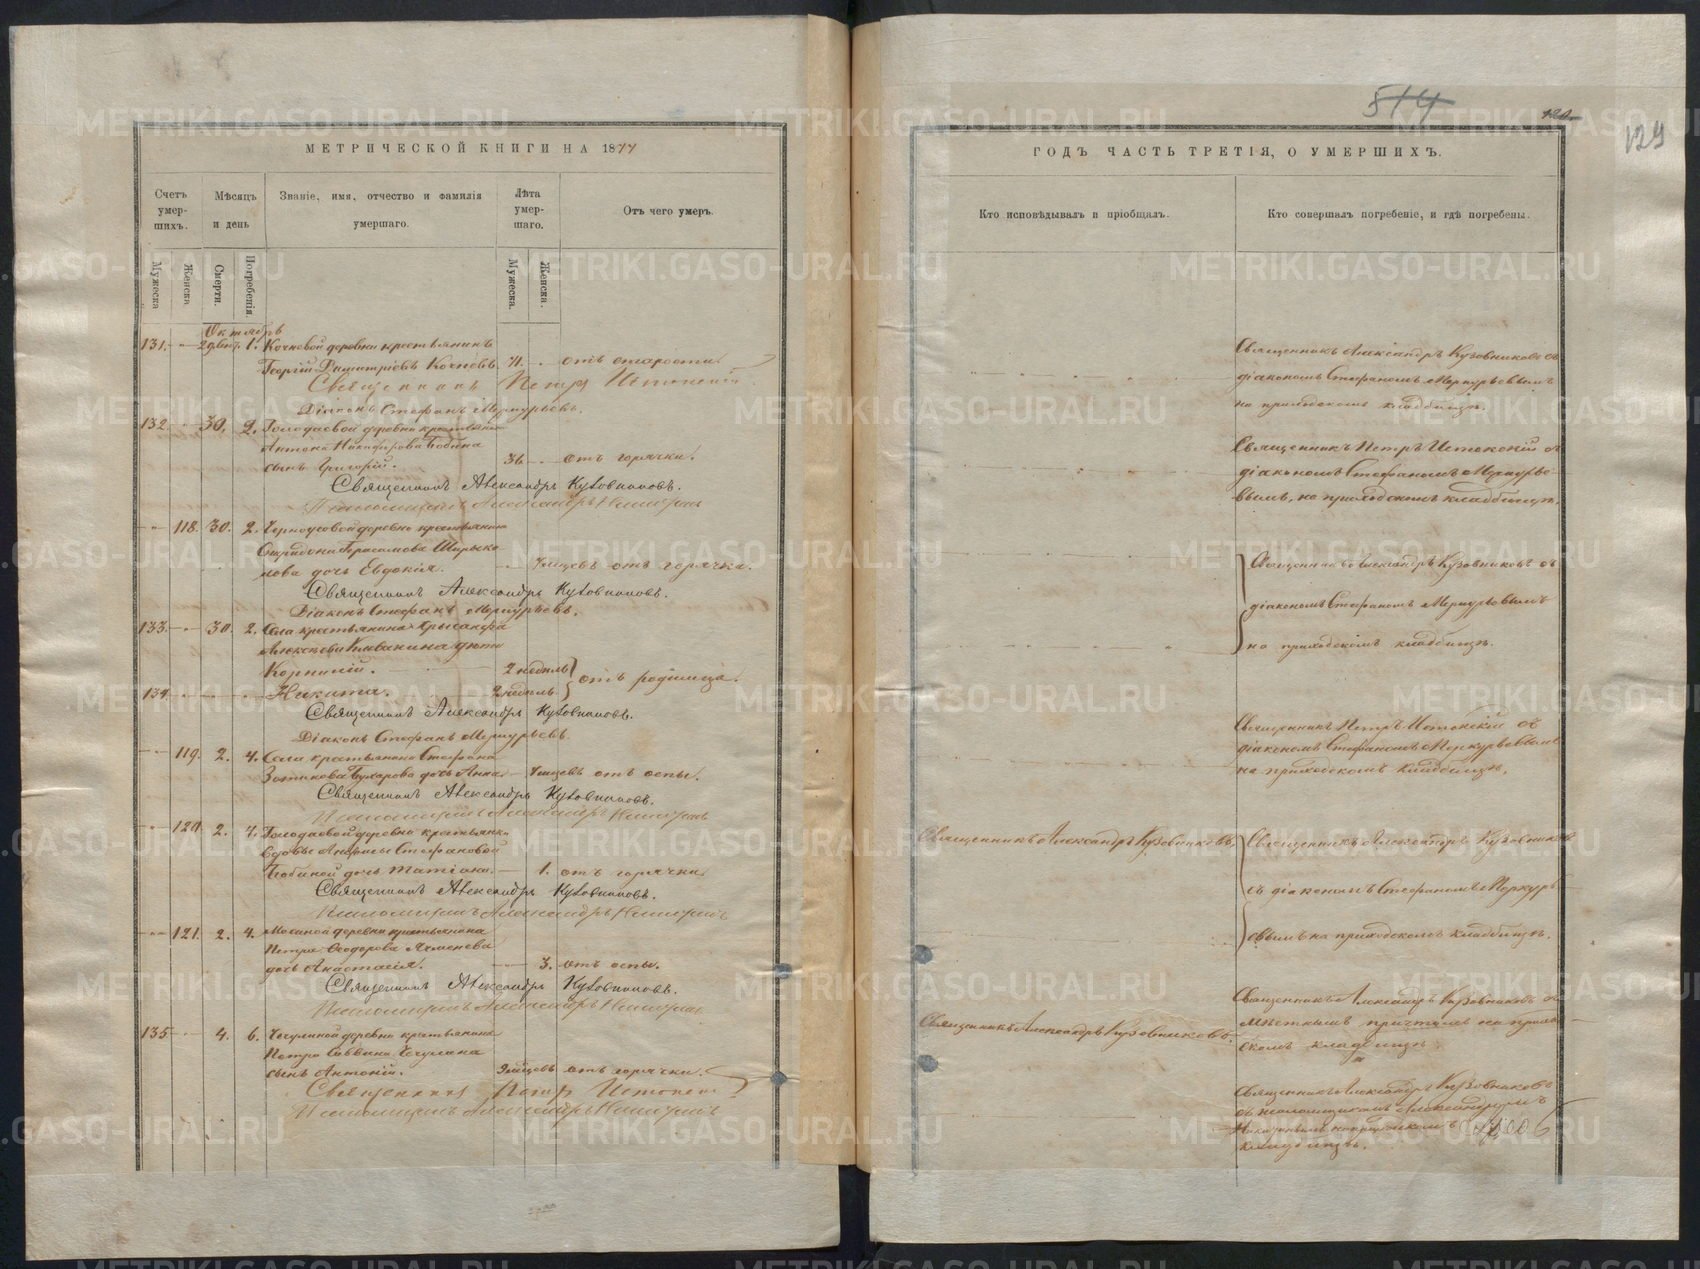 МЕТРИЧЕСКОЙ КНИГИ НА 1877
Счетъ умер-шихъ.
Мѣсяцъ и день
Званіе, имя, отчество и фамилія умершаго.
Лѣта умер-шаго.
Отъ чего умеръ.
Мужеска
Женска
Смерти.
Погребенія.
Мужеска.
Женска.
Октябрь
131. 1. Кочневой деревни крестьянинъ
Георгій Димитріевъ Кочневъ 71. отъ старости
Священникъ Петръ Истокскій
Діаконъ Стефанъ Меркурьевъ.
132 30. 2. Голодаевой деревни
Антона Никифорова Бабина
сынъ Григорій. 36 отъ горячки.
Священникъ Александръ Кузовниковъ.
Александръ
118. 30. 2. Черноусовой деревни крестьянина
Спиридона Герасимова
дочь Евдокія. отъ горячки.
Священникъ Александръ Кузовниковъ.
Діаконъ Стефанъ Меркурьевъ.
133 30. 2. Села крестьянина Хрисанфа
Алексѣева дѣти
Корнилій. 2 недѣль
134 Никита. 2 недѣль отъ родимца.
Священникъ Александръ Кузовниковъ.
Діаконъ Стефанъ Меркурьевъ.
119. 2. 4. Села крестьянина Стефана
Зотикова Бухарова дочь Анна отъ оспы.
Священникъ Александръ Кузовниковъ.
Александръ
120 2. 4. Голодаевой деревни
вдовы Анфисы Стефановой
Бабиной дочь Татіана. 1. отъ горячки.
Священникъ Александръ Кузовниковъ.
Александръ
121. 2. 4. Мосиной деревни крестьянина
Петра Ѳеодорова Ячменева
дочь Анастасія. 3. отъ оспы.
Священникъ Александръ Кузовниковъ.
Александръ
135 4. 6. Чечулиной деревни крестьянина
Петра Саввина Чечулина
сынъ Антоній. отъ горячки.
Священникъ Петръ Истокскій
Александръ
514
129
ГОДЪ ЧАСТЬ ТРЕТІЯ, О УМЕРШИХЪ.
Кто исповѣдывалъ и пріобщалъ.
Кто совершалъ погребеніе, и гдѣ погребены.
Священникъ Александръ Кузовниковъ съ
діакономъ Стефаномъ Меркурьевымъ
на приходскомъ кладбищѣ.
Священникъ Петръ Истокскій съ
діакономъ Стефаномъ Меркурье-
вымъ, на приходскомъ кладбищѣ.
Священникъ Александръ Кузовниковъ съ
діакономъ Стефаномъ Меркурьевымъ
на приходскомъ кладбищѣ.
Священникъ Петръ Истокскій съ
діакономъ Стефаномъ Меркурьевымъ
на приходскомъ кладбищѣ.
Священникъ Александръ Кузовниковъ Священникъ Александръ Кузовниковъ
съ діакономъ Стефаномъ Меркурь-
евымъ на приходскомъ кладбищѣ.
Священникъ Александръ Кузовниковъ съ
Священникъ Александръ Кузовниковъ. мѣстнымъ причтомъ на приход-
скомъ кладбищѣ.
Священникъ Александръ Кузовниковъ
съ псаломщикомъ Александромъ
на приходскомъ
кладбищѣ.
METRIKI.GASO-URAL.RU